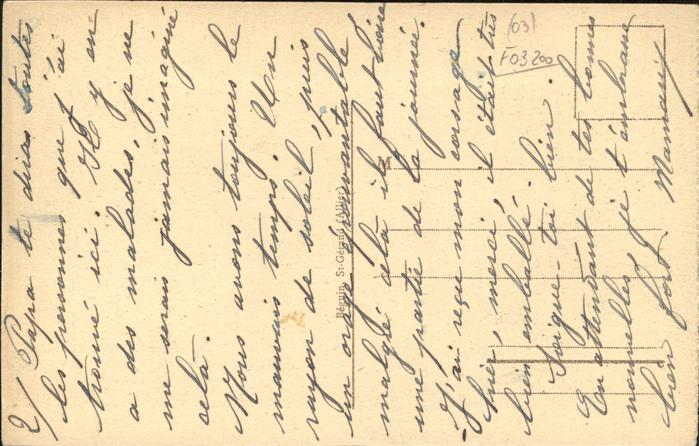 2/ Papa te diras toutes
les personnes que j'ai
trouvé ici. Il y en
a des malades, je ne
me serais jamais imaginé
cela.
Nous avons toujours le
mauvais temps. Un
rayon de soleil, puis
un orage épouvantable
malgré cela il faut boire
une partie de la journée.
J'ai reçu mon corsage
hier, merci, il était très
bien emballé.
Soigne-toi bien.
En attendant de tes bonnes
nouvelles je t'embrasse
bien fort Maman
M
Béguin, St-Gérand (Allier)
(03)
F03200